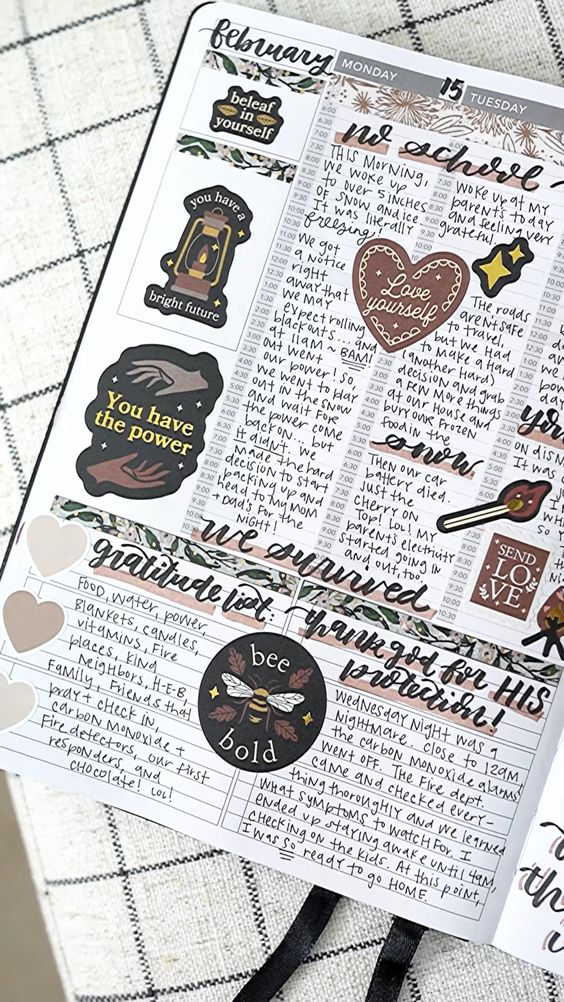 february
beleaf
in
yourself
you have a
bright future
You have
the power
MONDAY
15
no school
THIS MORNING,
we woke up
to over 5 inches
of snow and ice
It was literally
freezing!
We got
a notice
right
away that
we may
expect rolling
blackouts... and
at 11am ~ BAM!
out went
our power! so
we went to play
out in the snow
and wait for
the power come
back on... but
It didn't. We
made the hard
decision to start
packing up and
head to my Mom
+ Dad's for the
NIGHT!
we survived
TUESDAY
woke up at my
parents today
and feeling very
grateful.
Love
yourself
The roads
aren't safe
to travel.
but we had
to make a hard
(another hard)
decision and grab
a few more things
at our house and
bury our frozen
food in the
snow
Then our car
battery died.
Just the
cherry on
Top! LOL! My
parents electricity
started going in
and out, too.
SEND
LOVE
gratitude list:
FOOD, water, power,
Blankets, candles,
vitamins, Fire
places, kind
Neighbors, H-E-B,
Family, Friends that
pray + check in,
carbon monoxide +
Fire detectors, our first
responders, and
chocolate! LOL!
bee
bold
thank god for HIS
protection!
Wednesday Night was a
nightmare. Close to 12am
the carbon monoxide alarms
went off. The Fire dept.
came and checked every-
thing thoroughly and we learned
what symptoms to watch for. I
ended up staying awake until 4am,
checking on the kids. At this point,
I was so ready to go HOME.